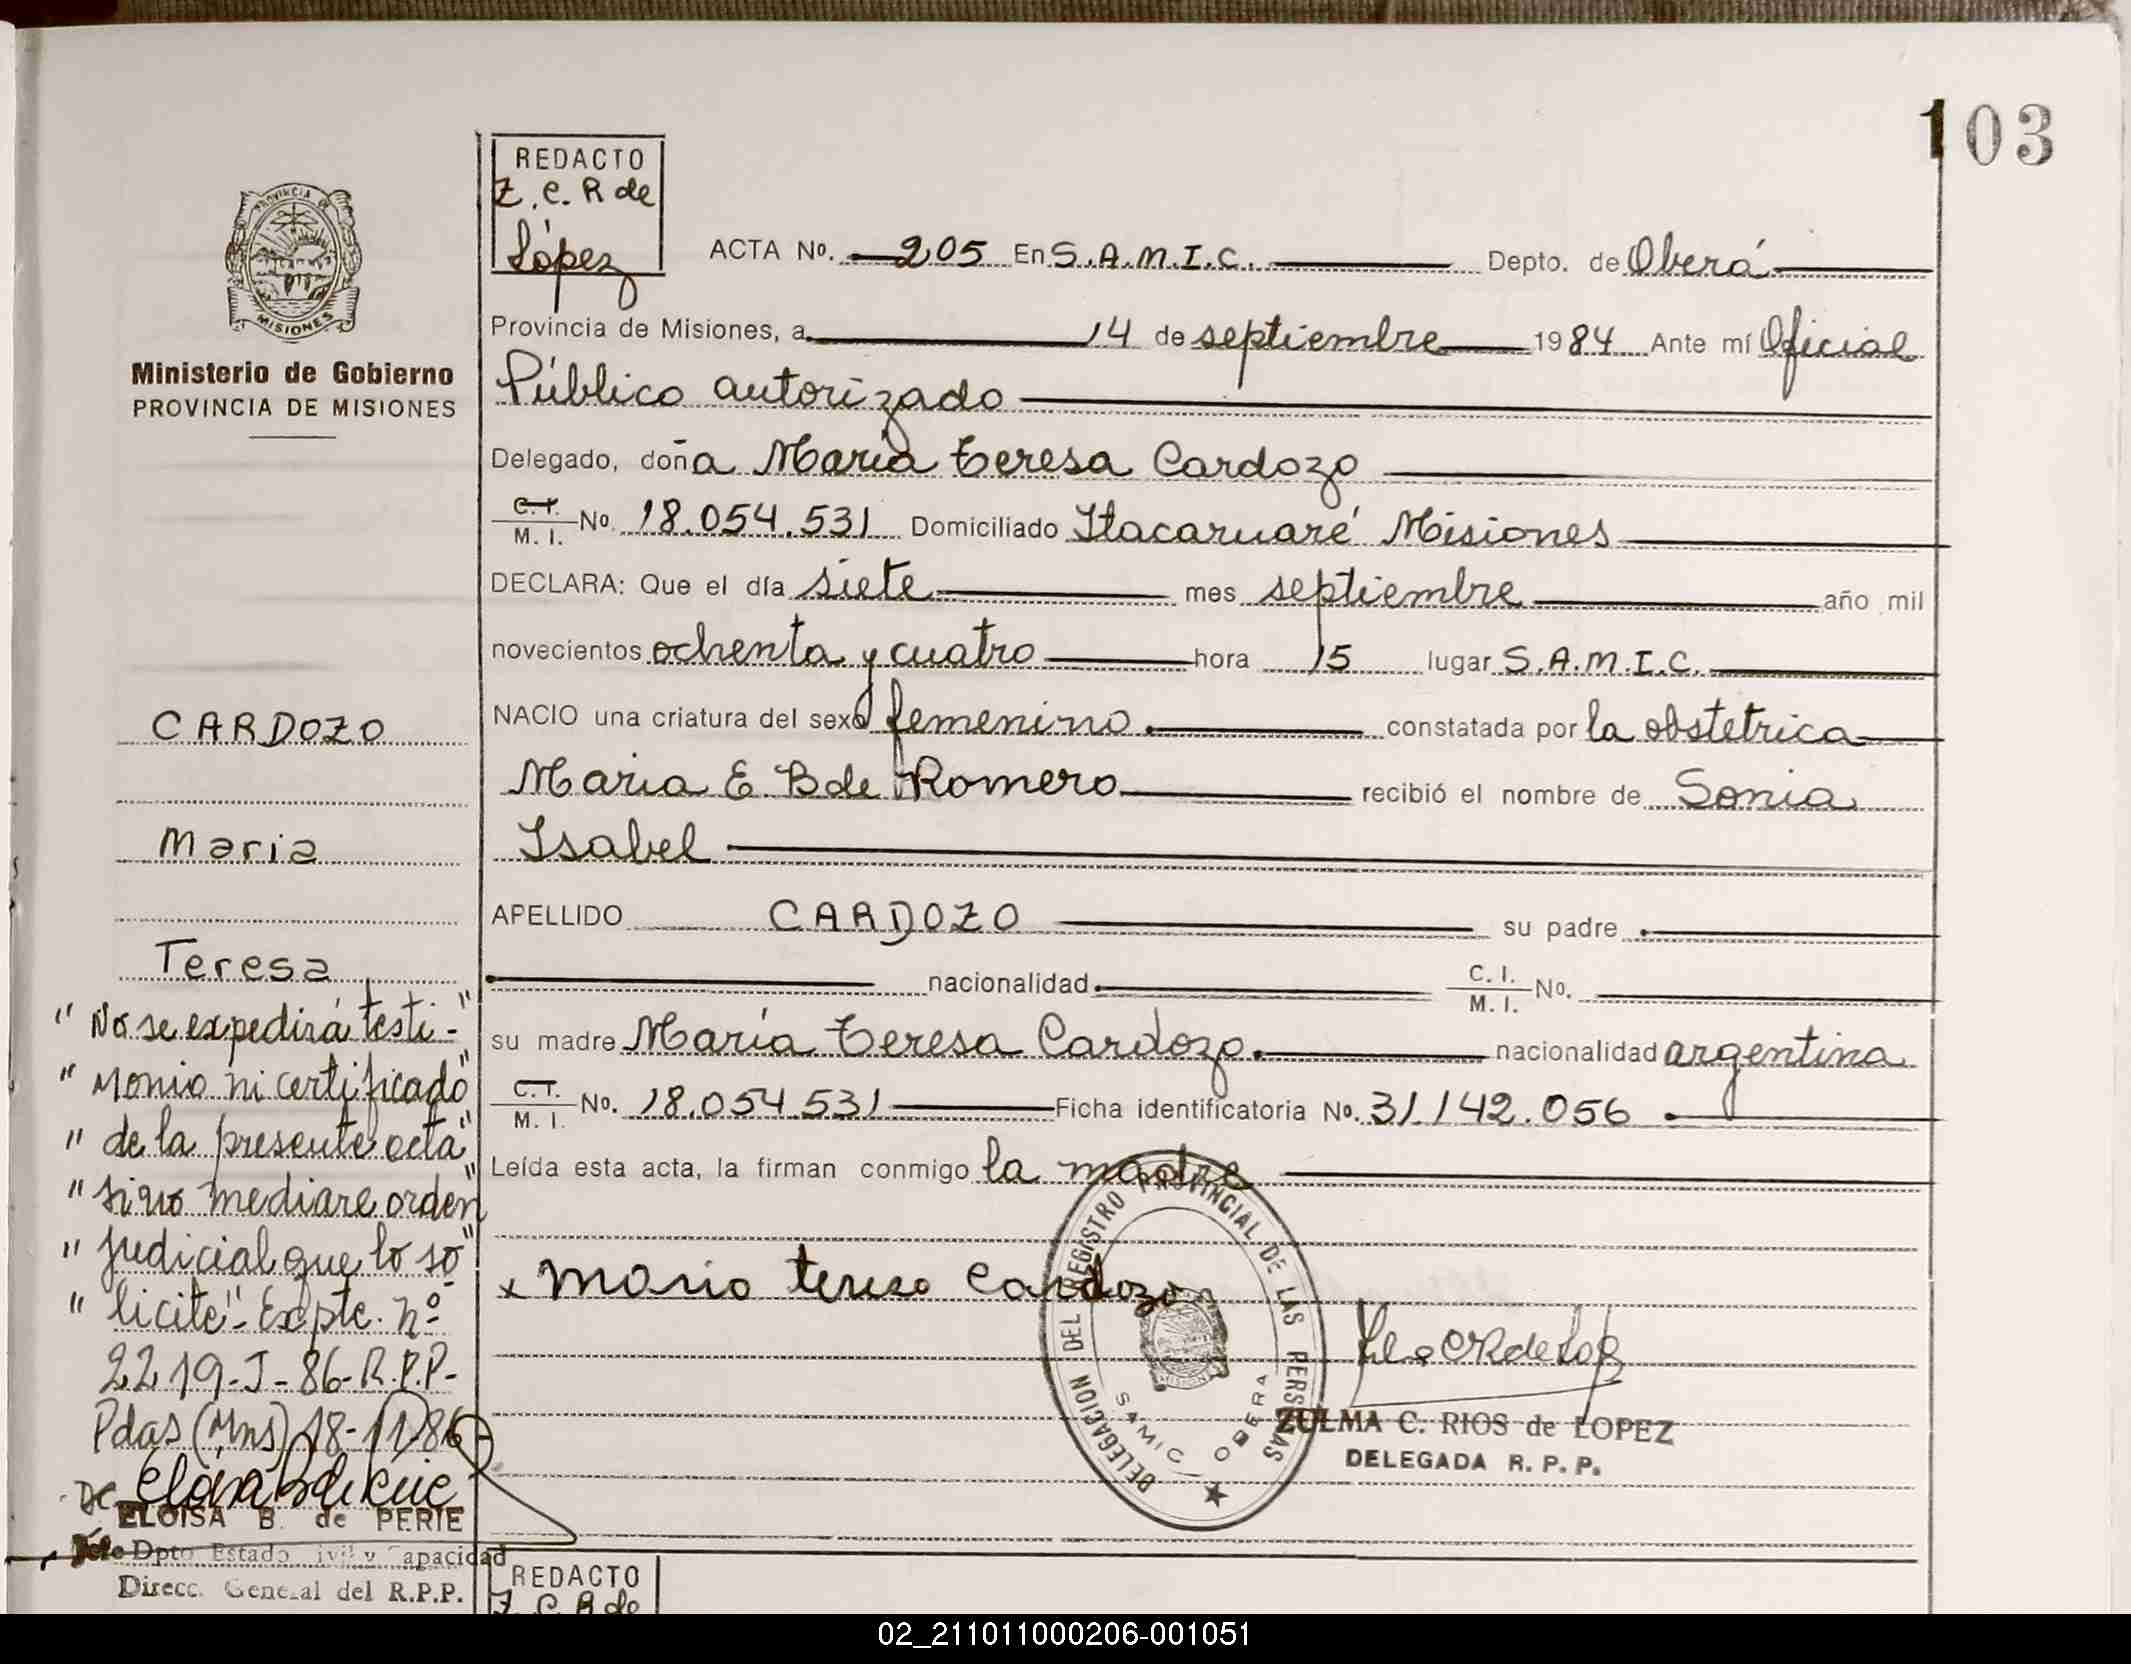 103
REDACTO
Z.C.R de
López
PROVINCIA DE
MISIONES
Ministerio de Gobierno
PROVINCIA DE MISIONES
ACTA No. 205 En S.A.M.I.C. Depto. de Oberá
Provincia de Misiones, a 14 de septiembre 1984 Ante mí Oficial
Público autorizado
Delegado, doña María Teresa Cardozo
C.I. M.I. No. 18.054.531 Domiciliado Itacaruaré Misiones
DECLARA: Que el día siete mes septiembre año mil
novecientos ochenta y cuatro hora 15 lugar S.A.M.I.C.
NACIO una criatura del sexo femenino constatada por la obstetrica
Maria E B de Romero recibió el nombre de Sonia
Isabel
APELLIDO CARDOZO su padre
nacionalidad C.I. M.I. No.
su madre María Teresa Cardozo nacionalidad argentina
C.I. M.I. No. 18.054.531 Ficha identificatoria No. 31.142.056
Leída esta acta, la firman conmigo la madre
x Maria teresa Cardozo
DELEGACION DEL REGISTRO PROVINCIAL DE LAS PERSONAS
SAMIC OBERA
MISIONES
ZULMA C. RIOS de LOPEZ
DELEGADA R.P.P.
CARDOZO
Maria
Teresa
"No se expedirá testi-"
"monio ni certificado"
"de la presente acta"
"si no mediare orden"
"judicial que lo so"
"licite"- Expte. nº
2219-J-86-R.P.P-
Pdas (Mns) 18-11-86
ELOISA B. de PERIE
Jefe Dpto. Estado Civil y Capacidad
Direcc. General del R.P.P.
REDACTO
Z.C.R de
02_211011000206-001051